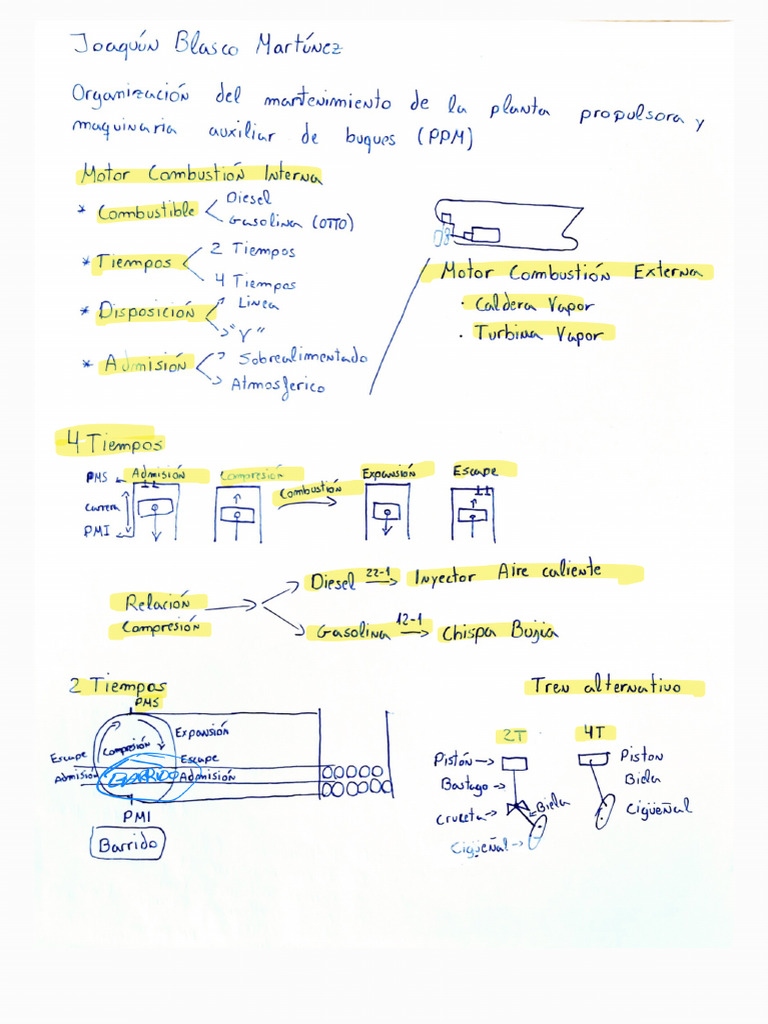 Joaquín Blasco Martínez
Organización del mantenimiento de la planta propulsora y
maquinaria auxiliar de buques (PPM)
Motor Combustión Interna
* Combustible
Diesel
Gasolina (OTTO)
* Tiempos
2 Tiempos
4 Tiempos
* Disposición
Linea
"V"
* Admisión
Sobrealimentado
Atmosferico
Motor Combustión Externa
· Caldera Vapor
· Turbina Vapor
4 Tiempos
PMS
Admisión
Compresión
Combustión
Expansión
Escape
Carrera
PMI
Relación
Compresión
Diesel 22-1 Inyector Aire caliente
Gasolina 12-1 Chispa Bujia
2 Tiempos
PMS
Expansión
Compresión
Escape
Escape
Admisión
BARRIDO
Admisión
PMI
Barrido
Tren alternativo
2T
Pistón
Bastago
Cruceta
Biela
Cigüeñal
4T
Piston
Biela
Cigüeñal